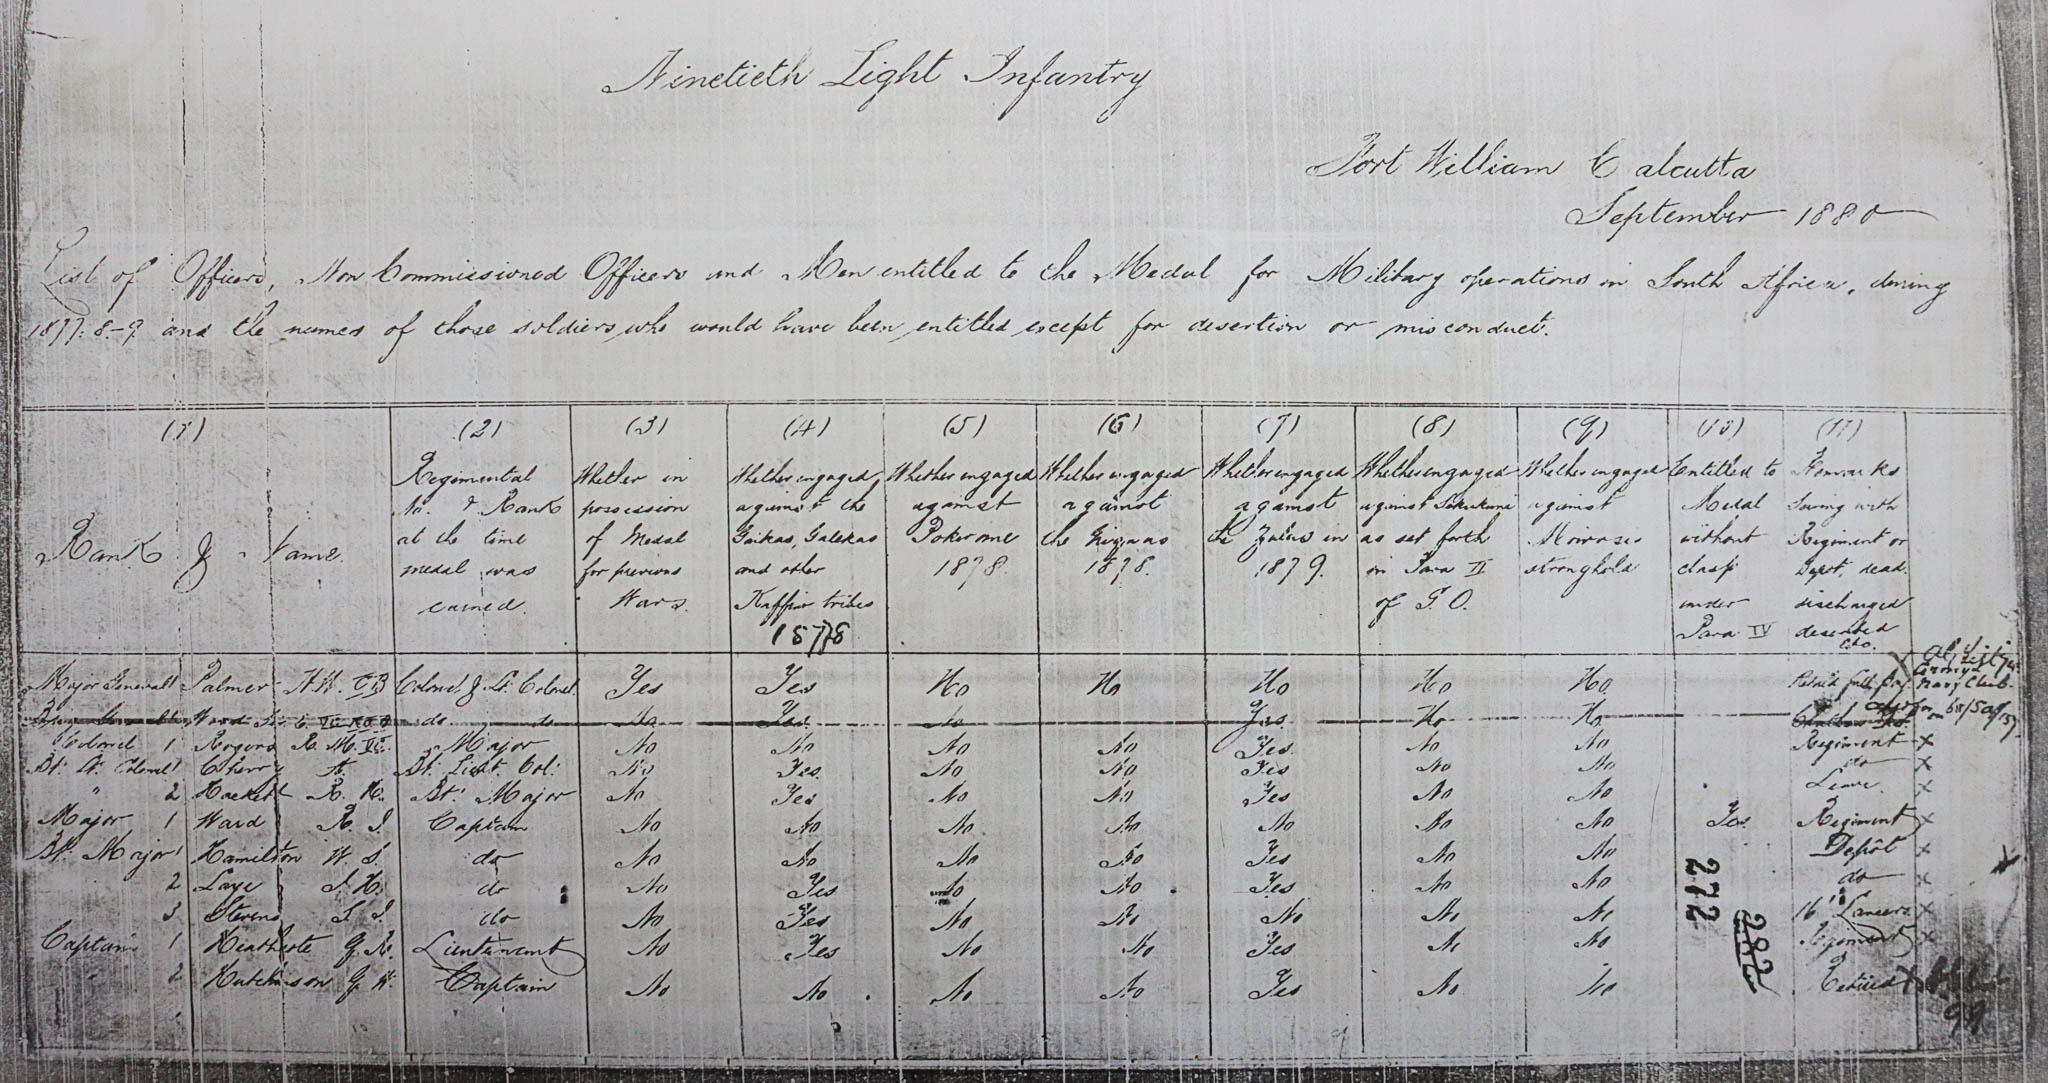 Ninetieth Light Infantry
Fort William Calcutta
September 1880
List of Officers, Non Commissioned Officers and Men entitled to the Medal for Military operations in South Africa, during
1877.8.-9. and the names of those soldiers who would have been entitled except for desertion or misconduct.
(1) (2) (3) (4) (5) (6) (7) (8) (9) (10) (11)
Rank & Name.
Regimental
No. & Rank
at the time
medal was
earned.
Whether in
possession
of Medal
for previous
Wars.
Whether engaged
against the
Gaikas, Galekas
and other
Kaffir tribes
1877/8
Whether engaged
against
Pokwane
1878.
Whether engaged
against
the Griquas
1878.
Whether engaged
against
the Zulus in
1879.
Whether engaged
against Sekukuni
as set forth
in Para II
of G.O.
Whether engaged
against
Moirosis
stronghold
Entitled to
Medal
without
clasp
under
Para IV
Remarks
Serving with
Regiment or
Depot, dead.
discharged
deserted
etc.
Major General 1 Palmer H.W. CB Colonel & Lt. Colonel Yes Yes No No No No No Retired full pay
Wood VC do do No Yes No Yes No No
Colonel 1 Rogers R. M. VC. Major No No No No Yes No No Regiment x
Bt. Lt. Colonel 1 Cherry A. Bt. Lieut. Col: No Yes No No Yes No No do x
" 2 Hackett R. H. Bt. Major No Yes No No Yes No No Leave. x
Major 1 Ward R. J. Captain No No No No No No No Yes Regiment x
Bt. Major 1 Hamilton W. S. do No No No No Yes No No Depôt x
2 Laye J. H. do No Yes No No Yes No No do x
3 Stevens S. J. do No Yes No No No No No 16th Lancers x
Captain 1 Heathcote G. R. Lieutenant No Yes No No Yes No No Regiment x
" 2 Hutchinson G. W. Captain No No No No Yes No No Retired x
272
282
99